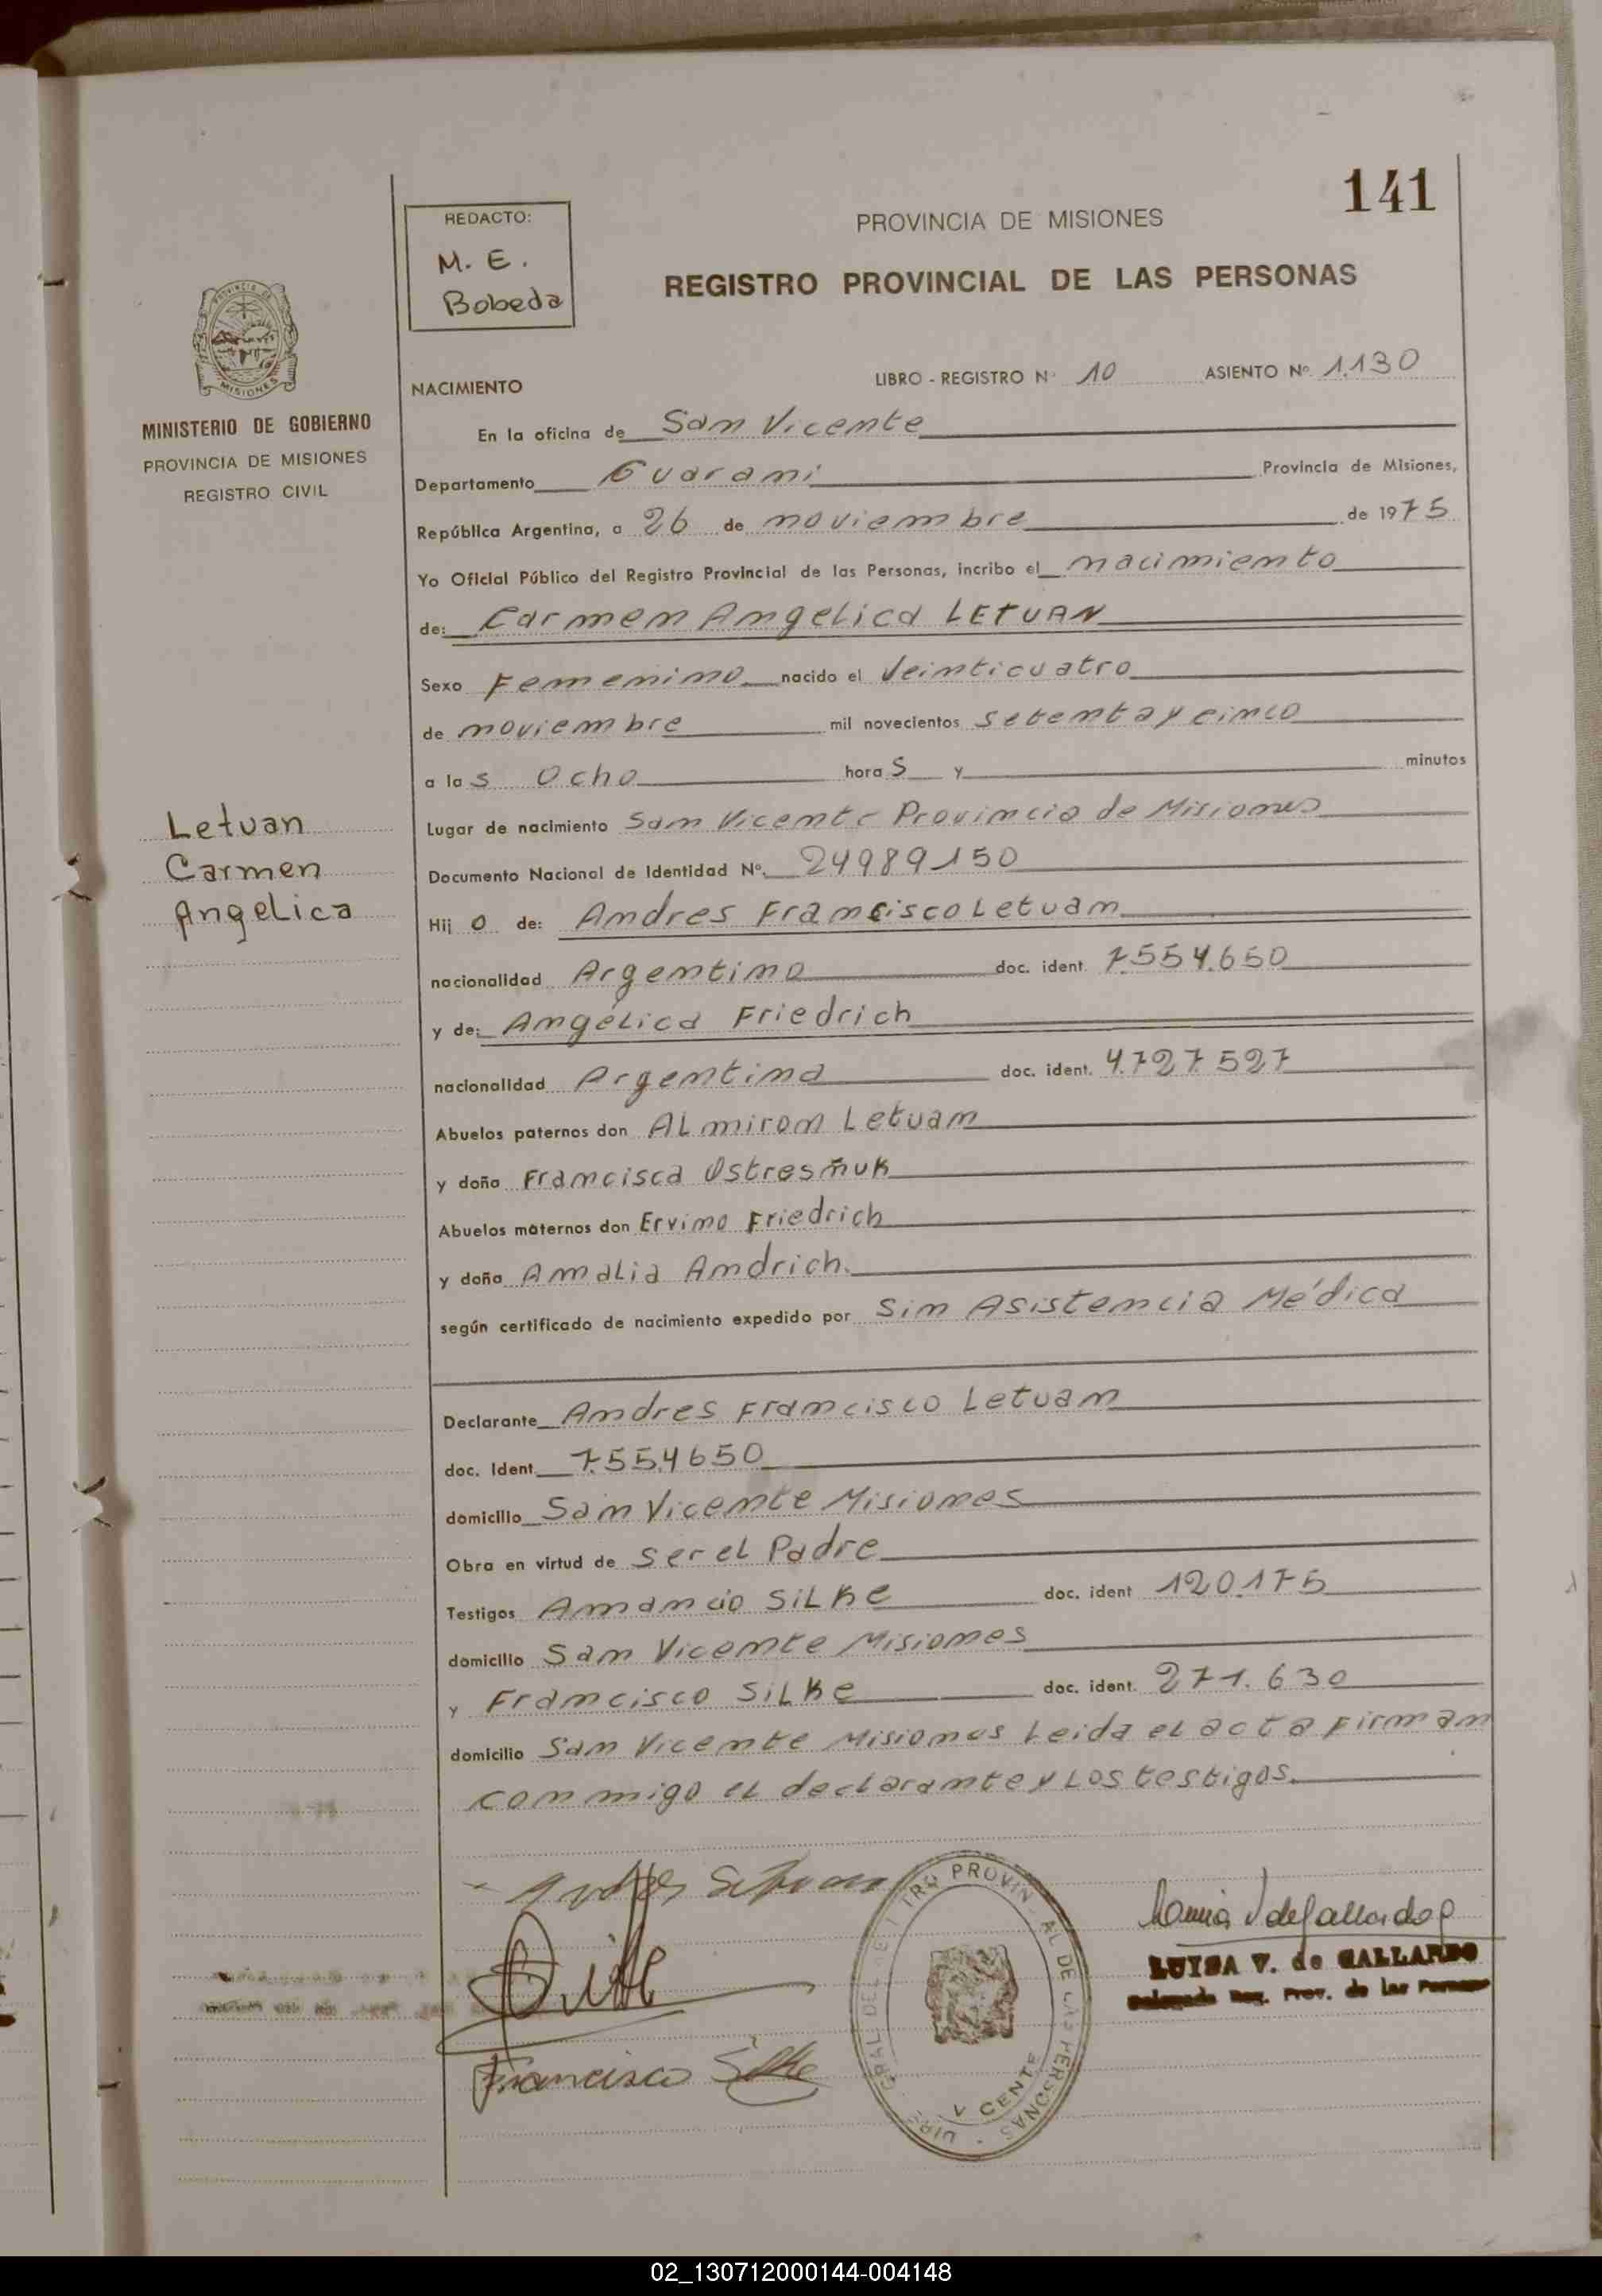 141
REDACTO:
M. E.
Bobeda
PROVINCIA DE MISIONES
REGISTRO PROVINCIAL DE LAS PERSONAS
MISIONES
MINISTERIO DE GOBIERNO
PROVINCIA DE MISIONES
REGISTRO CIVIL
NACIMIENTO LIBRO - REGISTRO Nº 10 ASIENTO Nº 1.130
En la oficina de San Vicente
Departamento Guarani Provincia de Misiones,
República Argentina, a 26 de noviembre de 1975
Yo Oficial Público del Registro Provincial de las Personas, incribo el nacimiento
de: Carmen Angelica LETUAN
Sexo Femenino nacido el Veinticuatro
de noviembre mil novecientos setenta y cinco
a las Ocho horas y minutos
Letuan
Carmen
Angelica
Lugar de nacimiento San Vicente Provincia de Misiones
Documento Nacional de Identidad Nº. 24989150
Hijo de: Andres Francisco Letuan
nacionalidad Argentino doc. ident. 7.554.650
y de: Angélica Friedrich
nacionalidad Argentina doc. ident. 4.727.527
Abuelos paternos don ALmiron Letuan
y doña Francisca Ostresñuk
Abuelos maternos don Ervino Friedrich
y doña Amalia Andrich.
según certificado de nacimiento expedido por Sin Asistencia Médica
Declarante Andres Francisco Letuan
doc. Ident. 7.554650
domicilio San Vicente Misiones
Obra en virtud de ser el Padre
Testigos Amancio SiLke doc. ident 120.175
domicilio San Vicente Misiones
y Francisco SiLke doc. ident. 271.630
domicilio San Vicente Misiones Leida el acta firman
conmigo el declarante y Los testigos.
Francisco Silke
V CENTE
LUISA V. de GALLARDO
Delegada Reg. Prov. de las Personas
02_130712000144-004148